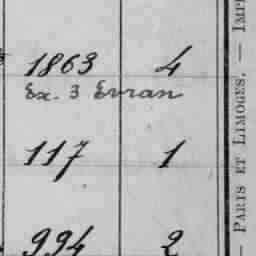 1863 4
Ex. 3 Evran
117 1
994 2
— PARIS ET LIMOGES. — IMP